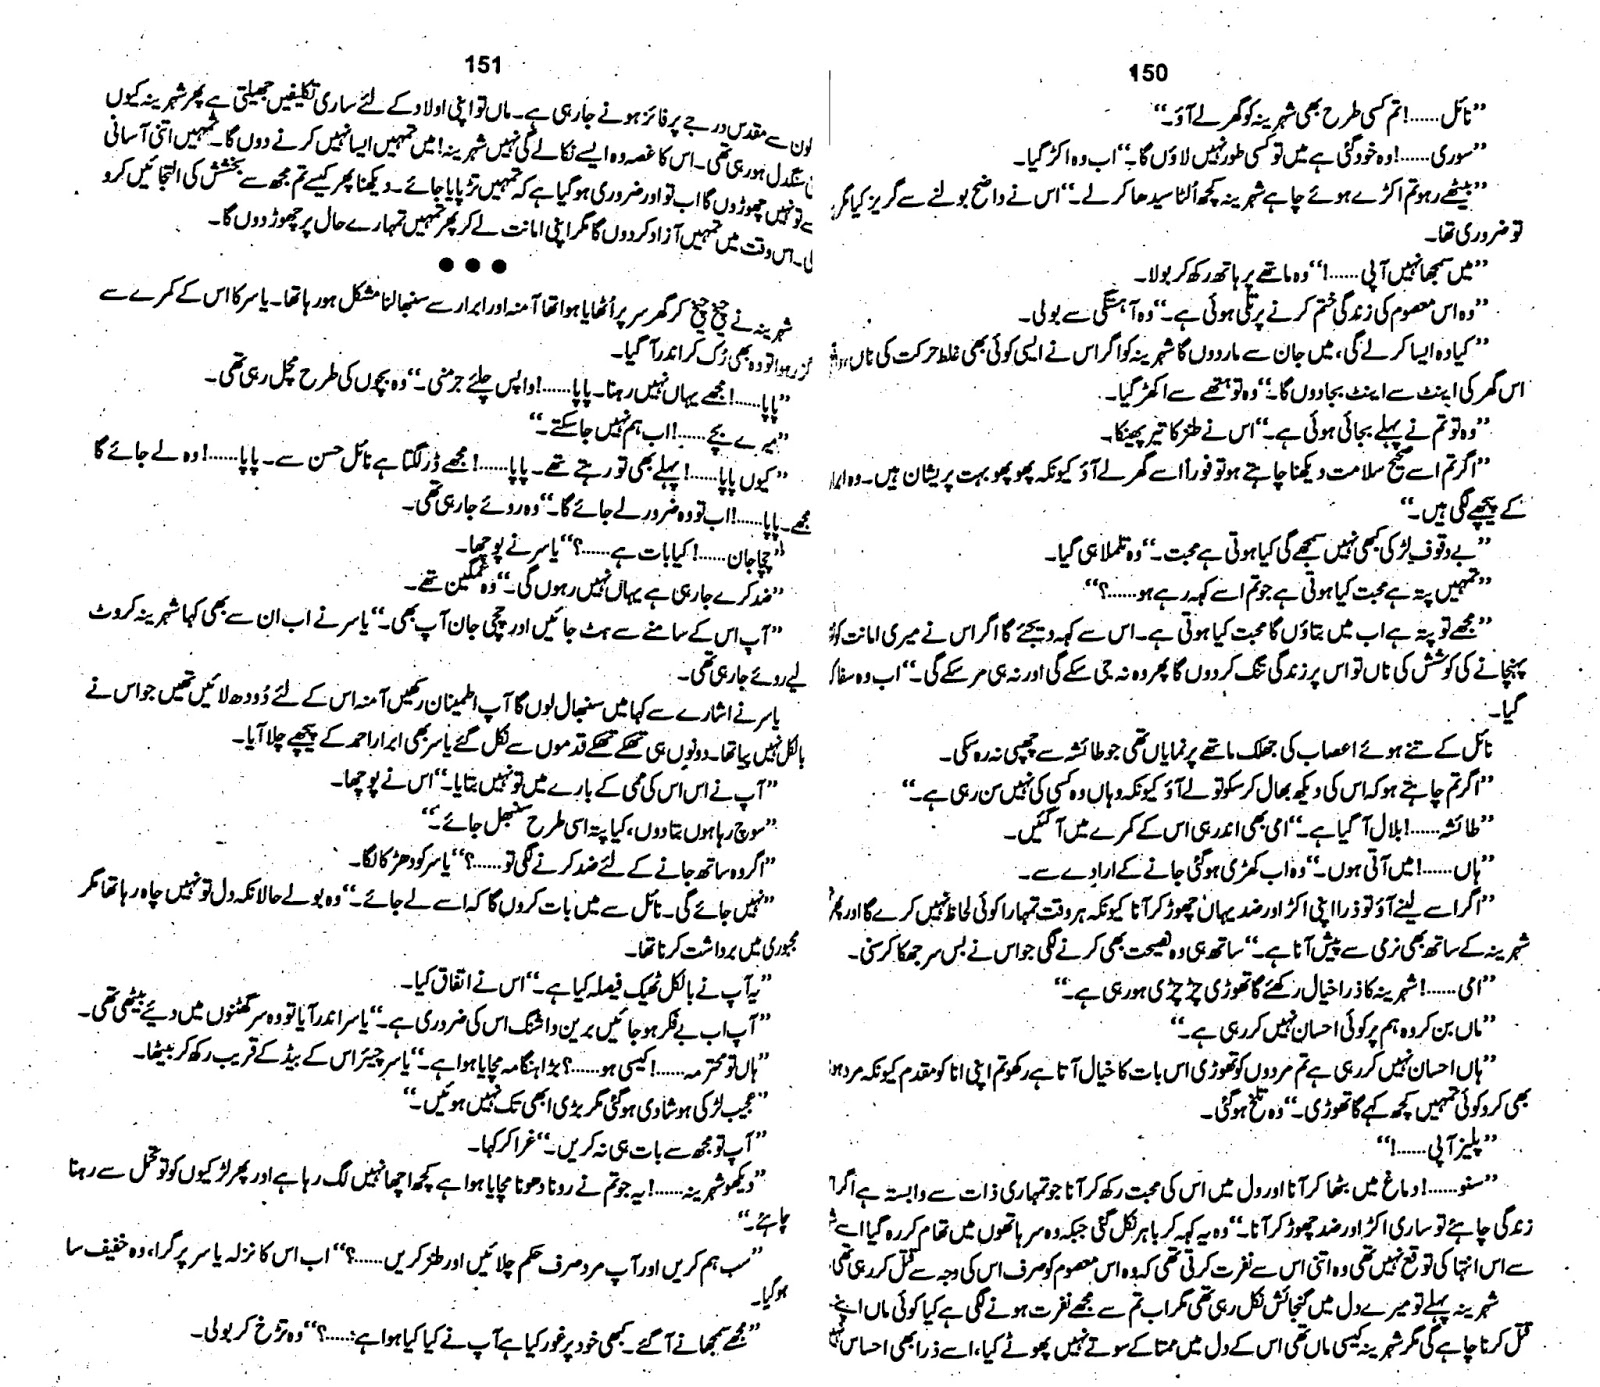 150
”نائل......! تم کسی طرح بھی شہرینہ کو گھر لے آؤ۔“
”سوری......! وہ خود گئی ہے میں تو کسی طور نہیں لاؤں گا۔“ اب وہ اکڑ گیا۔
”بیٹھے رہو تم اکڑے ہوئے چاہے شہرینہ کچھ اُلٹا سیدھا کر لے۔“ اس نے واضح بولنے سے گریز کیا مگر
تو ضروری تھا۔
”میں سمجھا نہیں آپی......!“ وہ ماتھے پر ہاتھ رکھ کر بولا۔
”وہ اس معصوم کی زندگی ختم کرنے پر تلی ہوئی ہے۔“ وہ آہستگی سے بولی۔
”کیا وہ ایسا کرلے گی، میں جان سے مار دوں گا شہرینہ کو اگر اس نے ایسی کوئی بھی غلط حرکت کی ناں،
اس گھر کی اینٹ سے اینٹ بجا دوں گا۔“ وہ تو ہتھے سے اکھڑ گیا۔
”وہ تو تم نے پہلے بجائی ہوئی ہے۔“ اس نے طنز کا تیر پھینکا۔
”اگر تم اسے صحیح سلامت دیکھنا چاہتے ہو تو فوراً اسے گھر لے آؤ کیونکہ پھوپھو بہت پریشان ہیں۔ وہ
کے پیچھے لگی ہیں۔“
”بے وقوف لڑکی کبھی نہیں سمجھے گی کیا ہوتی ہے محبت۔“ وہ تلملا ہی گیا۔
”تمہیں پتہ ہے محبت کیا ہوتی ہے جو تم اسے کہہ رہے ہو......؟“
”مجھے تو پتہ ہے اب میں بتاؤں گا محبت کیا ہوتی ہے۔ اس سے کہہ دیجئے گا اگر اس نے میری امانت کو
پہنچانے کی کوشش کی ناں تو اس پر زندگی تنگ کر دوں گا پھر وہ نہ جی سکے گی اور نہ ہی مر سکے گی۔“ اب وہ
گیا۔
نائل کے تنے ہوئے اعصاب کی جھلک ماتھے پر نمایاں تھی جو طائشہ سے چھپی نہ رہ سکی۔
”اگر تم چاہتے ہو کہ اس کی دیکھ بھال کر سکو تو لے آؤ کیونکہ وہاں وہ کسی کی نہیں سن رہی ہے۔“
”طائشہ......! بلال آگیا ہے۔“ امی بھی اندر ہی اس کے کمرے میں آگئیں۔
”ہاں......! میں آتی ہوں۔“ وہ اب کھڑی ہوگئی جانے کے ارادے سے۔
”اگر اسے لینے آؤ تو ذرا اپنی اکڑ اور ضد یہاں چھوڑ کر آنا کیونکہ ہر وقت تمہارا کوئی لحاظ نہیں کرے گا اور پھر
شہرینہ کے ساتھ بھی نرمی سے پیش آنا ہے۔“ ساتھ ہی وہ نصیحت بھی کرنے لگی جو اس نے بس سر جھکا کر سنی۔
”امی......! شہرینہ کا ذرا خیال رکھئے گا تھوڑی چڑچڑی ہو رہی ہے۔“
”ماں بن کر وہ ہم پر کوئی احسان نہیں کر رہی ہے۔“
”ہاں احسان نہیں کر رہی ہے تم مردوں کو تھوڑی اس بات کا خیال آتا ہے رکھو تم اپنی انا کو مقدم کیونکہ مرد ہو
بھی کرو کوئی تمہیں کچھ کہے گا تھوڑی۔“ وہ تلخ ہو گئی۔
”پلیز آپی......!“
”سنو......! دماغ میں بٹھا کر آنا اور دل میں اس کی محبت رکھ کر آنا جو تمہاری ذات سے وابستہ ہے اگر
زندگی چاہئے تو ساری اکڑ اور ضد چھوڑ کر آنا۔“ وہ یہ کہہ کر باہر نکل گئی جبکہ وہ سر ہاتھوں میں تھام کر رہ گیا اسے
سے اس انتہا کی توقع نہیں تھی وہ اتنی اس سے نفرت کرتی تھی کہ وہ اس معصوم کو صرف اس کی وجہ سے قتل کر رہی تھی۔
شہرینہ پہلے تو میرے دل میں گنجائش نکل رہی تھی مگر اب تم سے مجھے نفرت ہونے لگی ہے کیا کوئی ماں اپنے
قتل کرنا چاہے گی مگر شہرینہ کیسی ماں تھی اس کے دل میں ممتا کے سوتے نہیں پھوٹے کیا، اسے ذرا بھی احساس نہیں
151
کون سے مقدس درجے پر فائز ہونے جا رہی ہے۔ ماں تو اپنی اولاد کے لئے ساری تکلیفیں جھیلتی ہے پھر شہرینہ کیوں
سنگدل ہو رہی تھی۔ اس کا غصہ وہ ایسے نکالے گی نہیں شہرینہ! میں تمہیں ایسا نہیں کرنے دوں گا۔ تمہیں اتنی آسانی
سے تو نہیں چھوڑوں گا اب تو اور ضروری ہوگیا ہے کہ تمہیں تڑپایا جائے۔ دیکھنا پھر کیسے تم مجھ سے بخشش کی التجائیں کرو
گی۔ اس وقت میں تمہیں آزاد کردوں گا مگر اپنی امانت لے کر پھر تمہیں تمہارے حال پر چھوڑ دوں گا۔
● ● ●
شہرینہ نے چیخ چیخ کر گھر سر پر اُٹھایا ہوا تھا آمنہ اور ابرار سے سنبھالنا مشکل ہو رہا تھا۔ یاسر کا اس کے کمرے سے
گزر ہوا تو وہ بھی رُک کر اندر آگیا۔
”پاپا......! مجھے یہاں نہیں رہنا۔ پاپا......! واپس چلئے جرمنی۔“ وہ بچوں کی طرح مچل رہی تھی۔
”میرے بچے......! اب ہم نہیں جاسکتے۔“
”کیوں پاپا......! پہلے بھی تو رہتے تھے۔ پاپا......! مجھے ڈر لگتا ہے نائل حسن سے۔ پاپا......! وہ لے جائے گا
مجھے۔ پاپا......! اب تو وہ ضرور لے جائے گا۔“ وہ روئے جا رہی تھی۔
”چچا جان......! کیا بات ہے......؟“ یاسر نے پوچھا۔
”ضد کرے جا رہی ہے یہاں نہیں رہوں گی۔“ وہ غمگین تھے۔
”آپ اس کے سامنے سے ہٹ جائیں اور چچی جان آپ بھی۔“ یاسر نے اب ان سے بھی کہا شہرینہ کروٹ
لیے روئے جا رہی تھی۔
یاسر نے اشارے سے کہا میں سنبھال لوں گا آپ اطمینان رکھیں آمنہ اس کے لئے دُودھ لائیں تھیں جو اس نے
بالکل نہیں پیا تھا۔ دونوں ہی تھکے تھکے قدموں سے نکل گئے یاسر بھی ابرار احمد کے پیچھے چلا آیا۔
”آپ نے اس اس کی ممی کے بارے میں تو نہیں بتایا۔“ اس نے پوچھا۔
”سوچ رہا ہوں بتا دوں، کیا پتہ اسی طرح سنبھل جائے۔“
”اگر وہ ساتھ جانے کے لئے ضد کرنے لگی تو......؟“ یاسر کو دھڑکا لگا۔
”نہیں جائے گی۔ نائل سے میں بات کروں گا کہ اسے لے جائے۔“ وہ بولے حالانکہ دل تو نہیں چاہ رہا تھا مگر
مجبوری میں برداشت کرنا تھا۔
”یہ آپ نے بالکل ٹھیک فیصلہ کیا ہے۔“ اس نے اتفاق کیا۔
”آپ اب بے فکر ہو جائیں برین واشنگ اس کی ضروری ہے۔“ یاسر اندر آیا تو وہ سر گھٹنوں میں دیئے بیٹھی تھی۔
”ہاں تو محترمہ......! کیسی ہو......؟ بڑا ہنگامہ مچایا ہوا ہے۔“ یاسر چیئر اس کے بیڈ کے قریب رکھ کر بیٹھا۔
”عجیب لڑکی ہو شادی ہوگئی مگر بڑی ابھی تک نہیں ہوئیں۔“
”آپ تو مجھ سے بات ہی نہ کریں۔“ غرا کر کہا۔
”دیکھو شہرینہ......! یہ جو تم نے رونا دھونا مچایا ہوا ہے کچھ اچھا نہیں لگ رہا ہے اور پھر لڑکیوں کو تو تحمل سے رہنا
چاہئے۔“
”سب ہم کریں اور آپ مرد صرف حکم چلائیں اور طنز کریں......؟“ اب اس کا نزلہ یاسر پر گرا، وہ خفیف سا
ہوگیا۔
”مجھے سمجھانے آگئے۔ کبھی خود پر غور کیا ہے آپ نے کیا کیا ہوا ہے......؟“ وہ تڑخ کر بولی۔